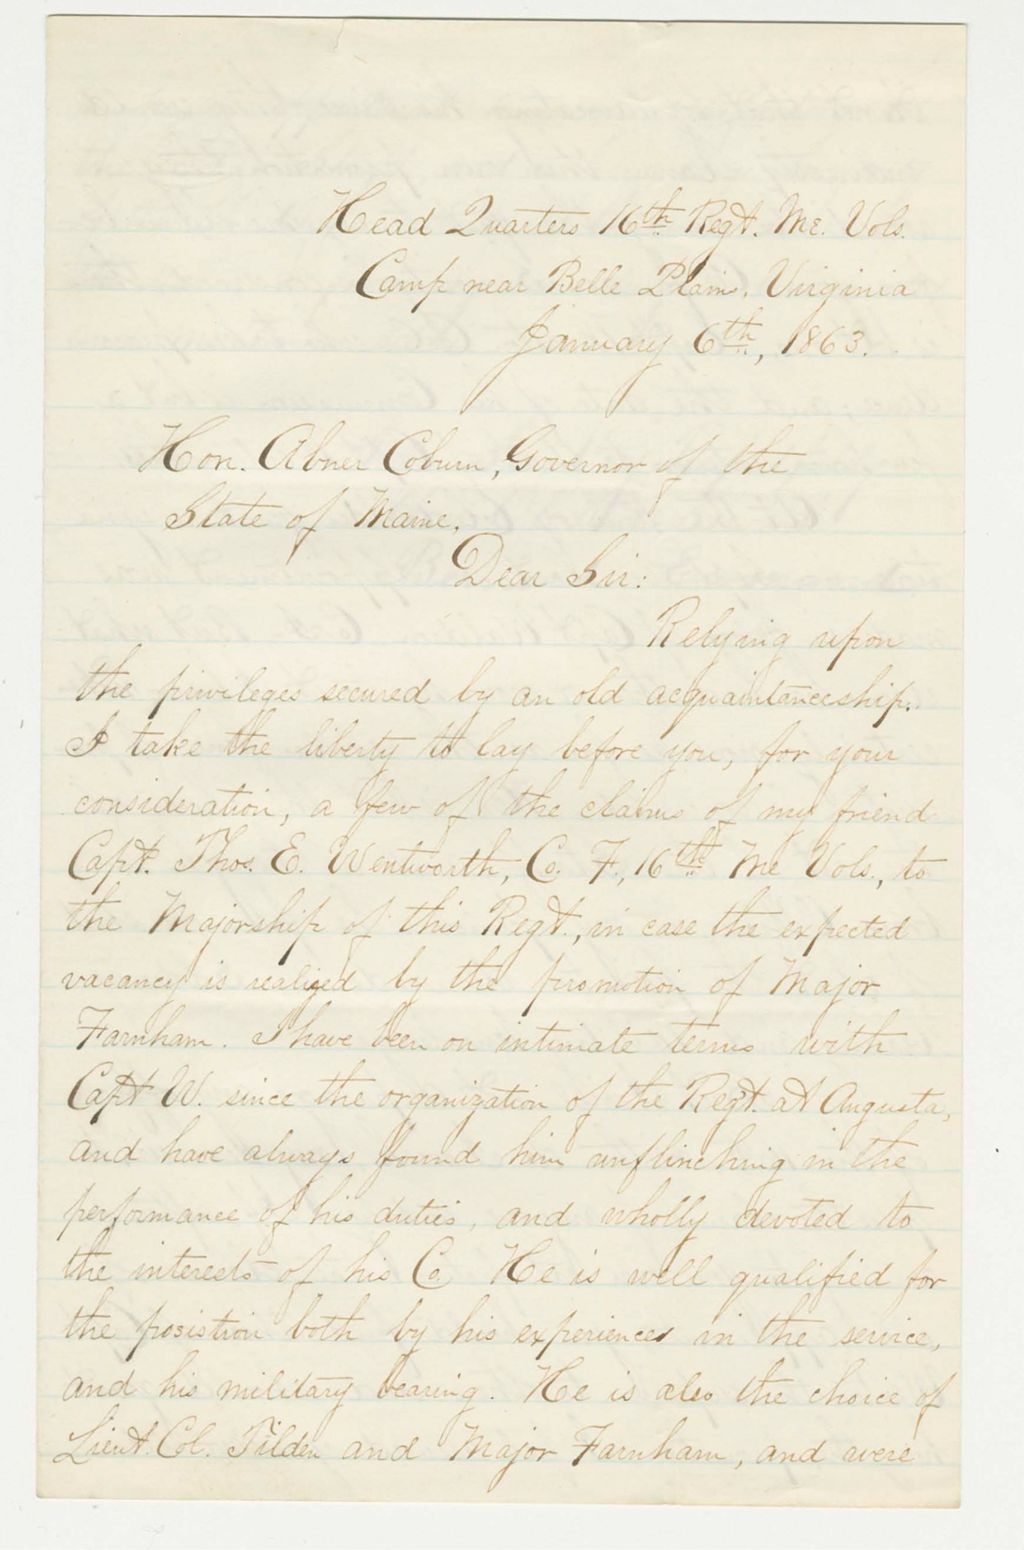 Head Quarters 16th Regt. Me. Vols.
Camp near Belle Plain, Virginia
January 6th, 1863.
Hon. Abner Coburn, Governor of the
State of Maine.
Dear Sir:
Relying upon
the privileges secured by an old acquaintanceship,
I take the liberty to lay before you, for your
consideration, a few of the claims of my friend
Capt. Thos. E. Wentworth, Co. F, 16th Me Vols., to
the Majorship of this Regt., in case the expected
vacancy is realized by the promotion of Major
Farnham. I have been on intimate terms with
Capt W. since the organization of the Regt. at Augusta,
and have always found him unflinching in the
performance of his duties, and wholly devoted to
the interests of his Co. He is well qualified for
the posistion both by his experiences in the service,
and his military bearing. He is also the choice of
Lieut. Col. Tilden and Major Farnham, and were